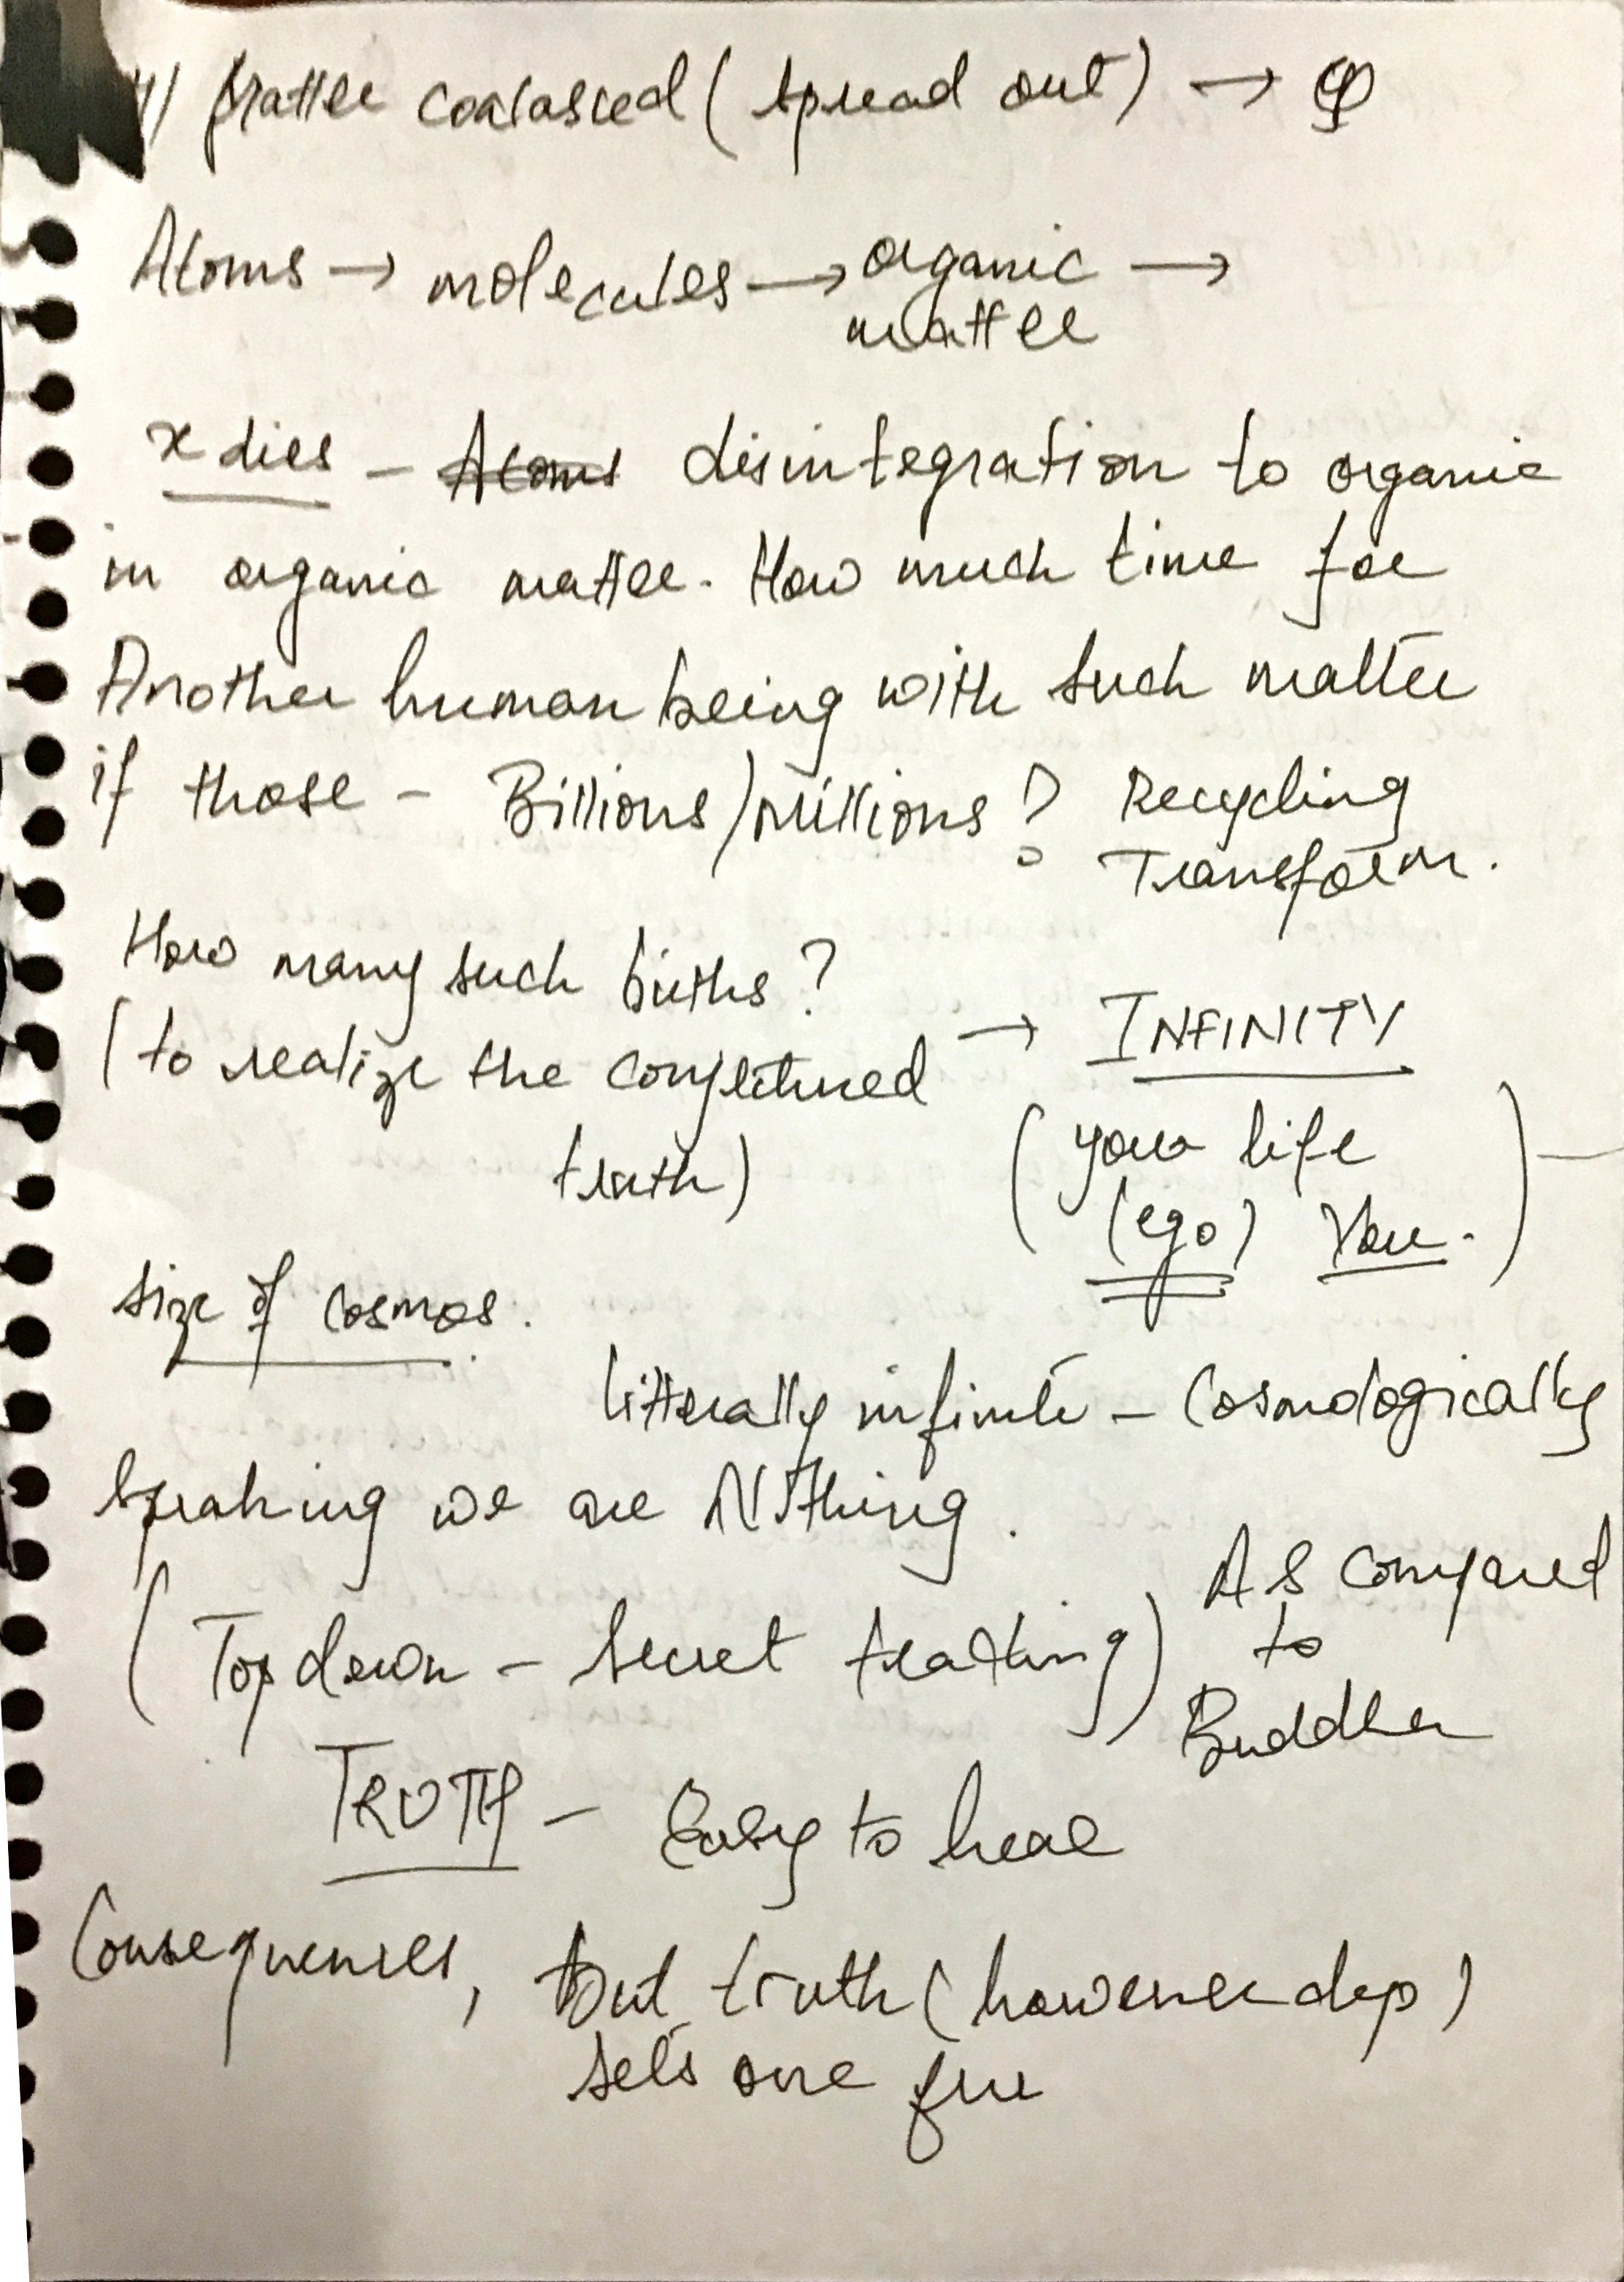 Matter coalasced (spread out) → φ
Atoms → molecules → organic →
matter
x dies – Atoms disintegration to organic
in organic matter. How much time for
Another human being with such matter
if those – Billions/Millions? Recycling
Transform.
How many such births?
(to realize the conjectured → INFINITY
truth)
(your life
(ego) You.) –
Size of Cosmos.
litterally infinite – Cosmologically
speaking we are Nothing.
(Top down – Secret teaching) As compared
to
Buddha
TRUTH – Easy to hear
Consequences, but truth (however deep)
sets one free